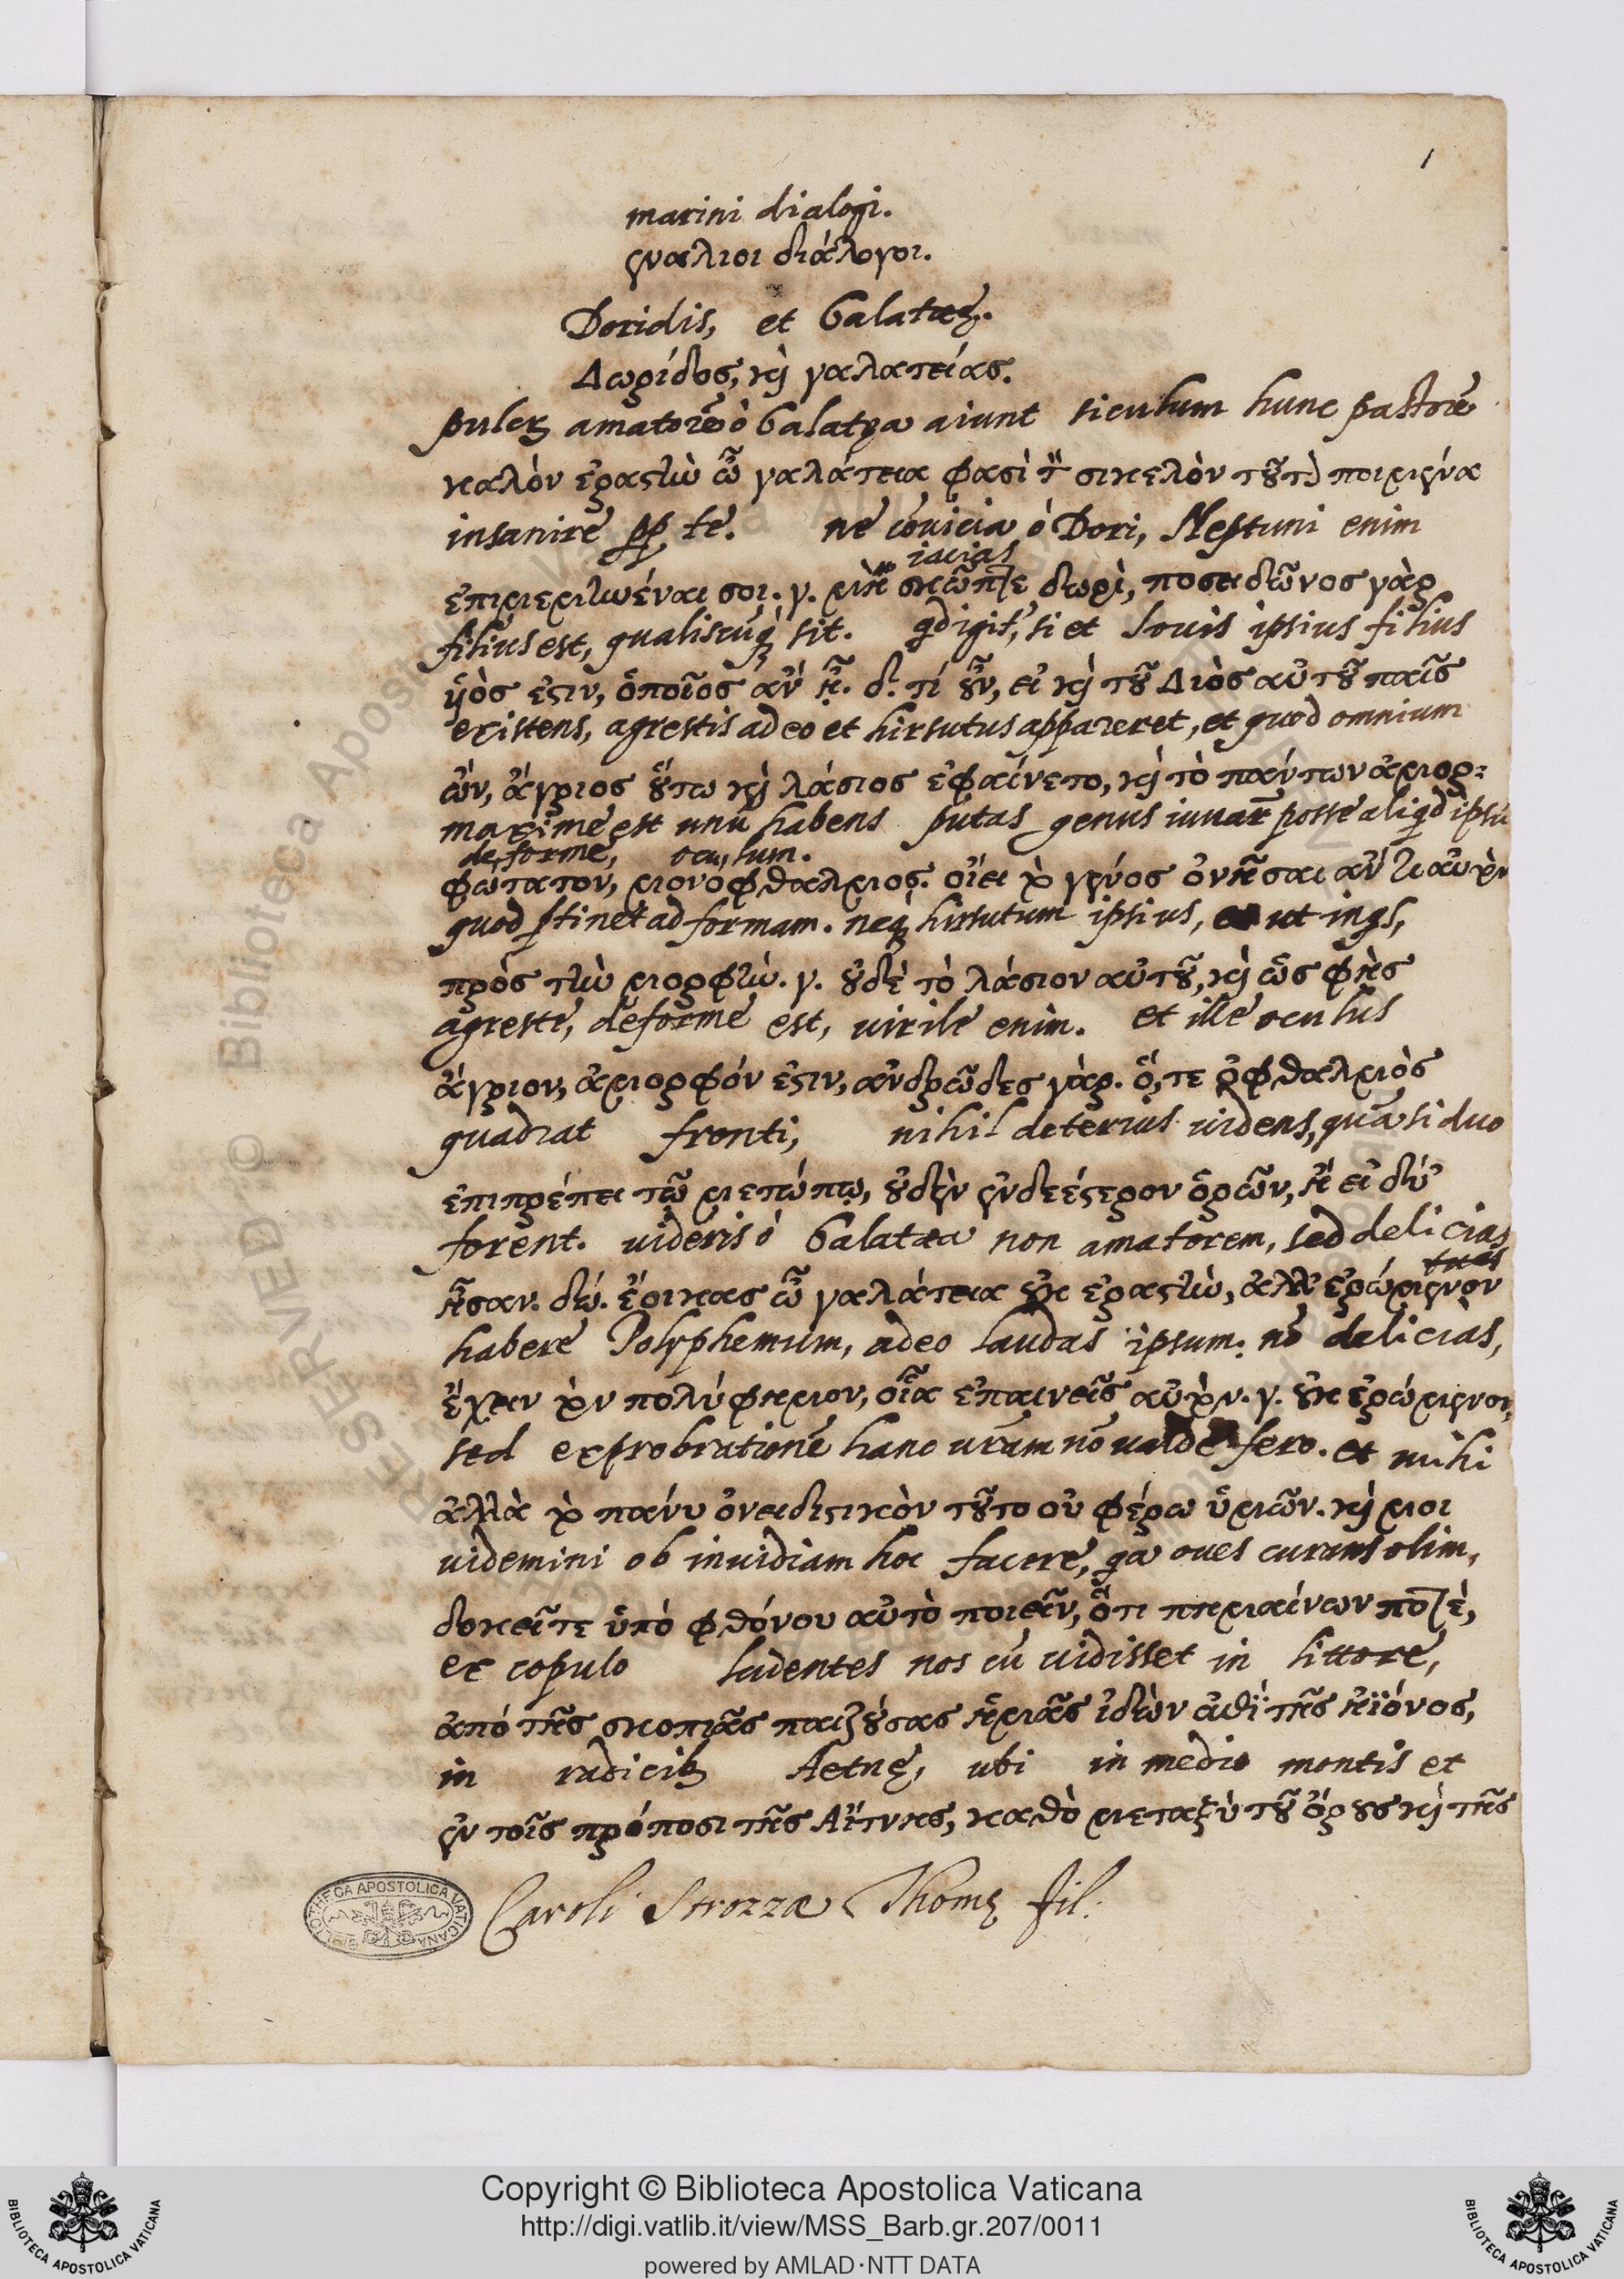 1
marini dialogi.
ἐνάλιοι διάλογοι.
Doridis, et Galateę.
Δωρίδος, καὶ γαλατείας.
pulcr̃ amatorẽ ò Galatęa aiunt siculum hunc pastorẽ
καλὸν ἐραστὴν ὦ γαλάτεια φασὶ τὸν σικελὸν τοῦτον ποιμένα
insanire pp te. ne cõuicia ò Dori, Neptuni enim
iacias
ἐπιμεμηνέναι σοι. γ. μὴ σκῶπτε δωρὶ, ποσειδῶνος γὰρ
filius est, qualiscũq; sit. qd igit̃, si et Iouis ipsius filius
ὑὸς ἐστιν, ὁποῖος ἂν ᾖ. δ. τί οὖν, εἰ καὶ τοῦ Διὸς αὐτοῦ παῖς
existens, agrestis adeo et hirsutus appareret, et quod omnium
ὢν, ἄγριος οὕτω καὶ λάσιος ἐφαίνετο, καὶ τὸ πάντων ἀμορ:
maxime est unũ habens putas genus iuuar̃ posse aliqd ipsũ
deforme, oculum.
φώτατον, μονόφθαλμος. οἴει τὸ γένος ὀνῆσαι ἄν τι αὐτὸν
quod ptinet ad formam. neq; hirsutum ipsius, et ut inqs,
πρὸς τὴν μορφήν. γ. οὐδὲ τὸ λάσιον αὐτοῦ, καὶ ὡς φῂς
agreste, deforme est, uirile enim. et ille oculus
ἄγριον, ἄμορφόν ἐστιν, ἀνδρῶδες γὰρ. ὅ, τε ὀφθαλμὸς
quadrat fronti, nihil deterius uidens, quã si duo
ἐπιπρέπει τῷ μετώπῳ, οὐδὲν ἐνδεέστερον ὁρῶν, ἢ εἰ δύ᾽
forent. uideris ò Galatæa non amatorem, sed delicias
tuas
ἦσαν. δω. ἔοικας ὦ γαλάτεια οὐκ ἐραστὴν, ἀλλ᾽ ἐρώμενον
habere Polyphemum, adeo laudas ipsum. nõ delicias,
ἔχειν τὸν πολύφημον, οἷα ἐπαινεῖς αὐτὸν. γ. οὐκ ἐρώμενον,
sed exprobrationẽ hanc uram nõ ualde fero. et mihi
ἀλλὰ τὸ πάνυ ὀνειδιστικὸν τοῦτο οὐ φέρω ὑμῶν. καὶ μοι
uidemini ob inuidiam hoc facere, qa oues curans olim,
δοκεῖτε ὑπὸ φθόνου αὐτὸ ποιεῖν, ὅτι ποιμαίνων ποτὲ,
ex copulo ludentes nos cũ uidisset in littore,
ἀπό τῆς σκοπιᾶς παιζούσας ἡμᾶς ἰδὼν ἐπὶ τῆς ἠϊόνος,
in radicib; Aetnę, ubi in medio montis et
ἐν τοῖς πρόποσι τῆς Αἴτνης, καθὸ μεταξὺ τοῦ ὄρους καὶ τῆς
Caroli Strozzæ Thomę fil.
BIBLIOTHECA APOSTOLICA VATICANA
Copyright © Biblioteca Apostolica Vaticana
http://digi.vatlib.it/view/MSS_Barb.gr.207/0011
powered by AMLAD·NTT DATA
BIBLIOTECA APOSTOLICA VATICANA
BIBLIOTECA APOSTOLICA VATICANA